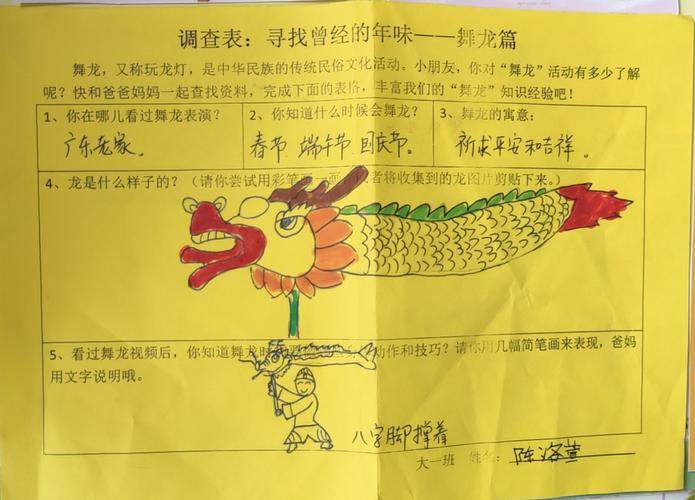 调查表：寻找曾经的年味——舞龙篇
舞龙，又称玩龙灯，是中华民族的传统民俗文化活动。小朋友，你对“舞龙”活动有多少了解
呢？快和爸爸妈妈一起查找资料，完成下面的表格，丰富我们的“舞龙”知识经验吧！
1、你在哪儿看过舞龙表演？
广东老家。
2、你知道什么时候会舞龙？
春节 端午节 国庆节。
3、舞龙的寓意：
祈求平安和吉祥。
4、龙是什么样子的？（请你尝试用彩笔画一画，或者将收集到的龙图片剪贴下来。）
5、看过舞龙视频后，你知道舞龙时 动作和技巧？请你用几幅简笔画来表现，爸妈
用文字说明哦。
八字脚撑着
大一班 姓名：陈洛萱